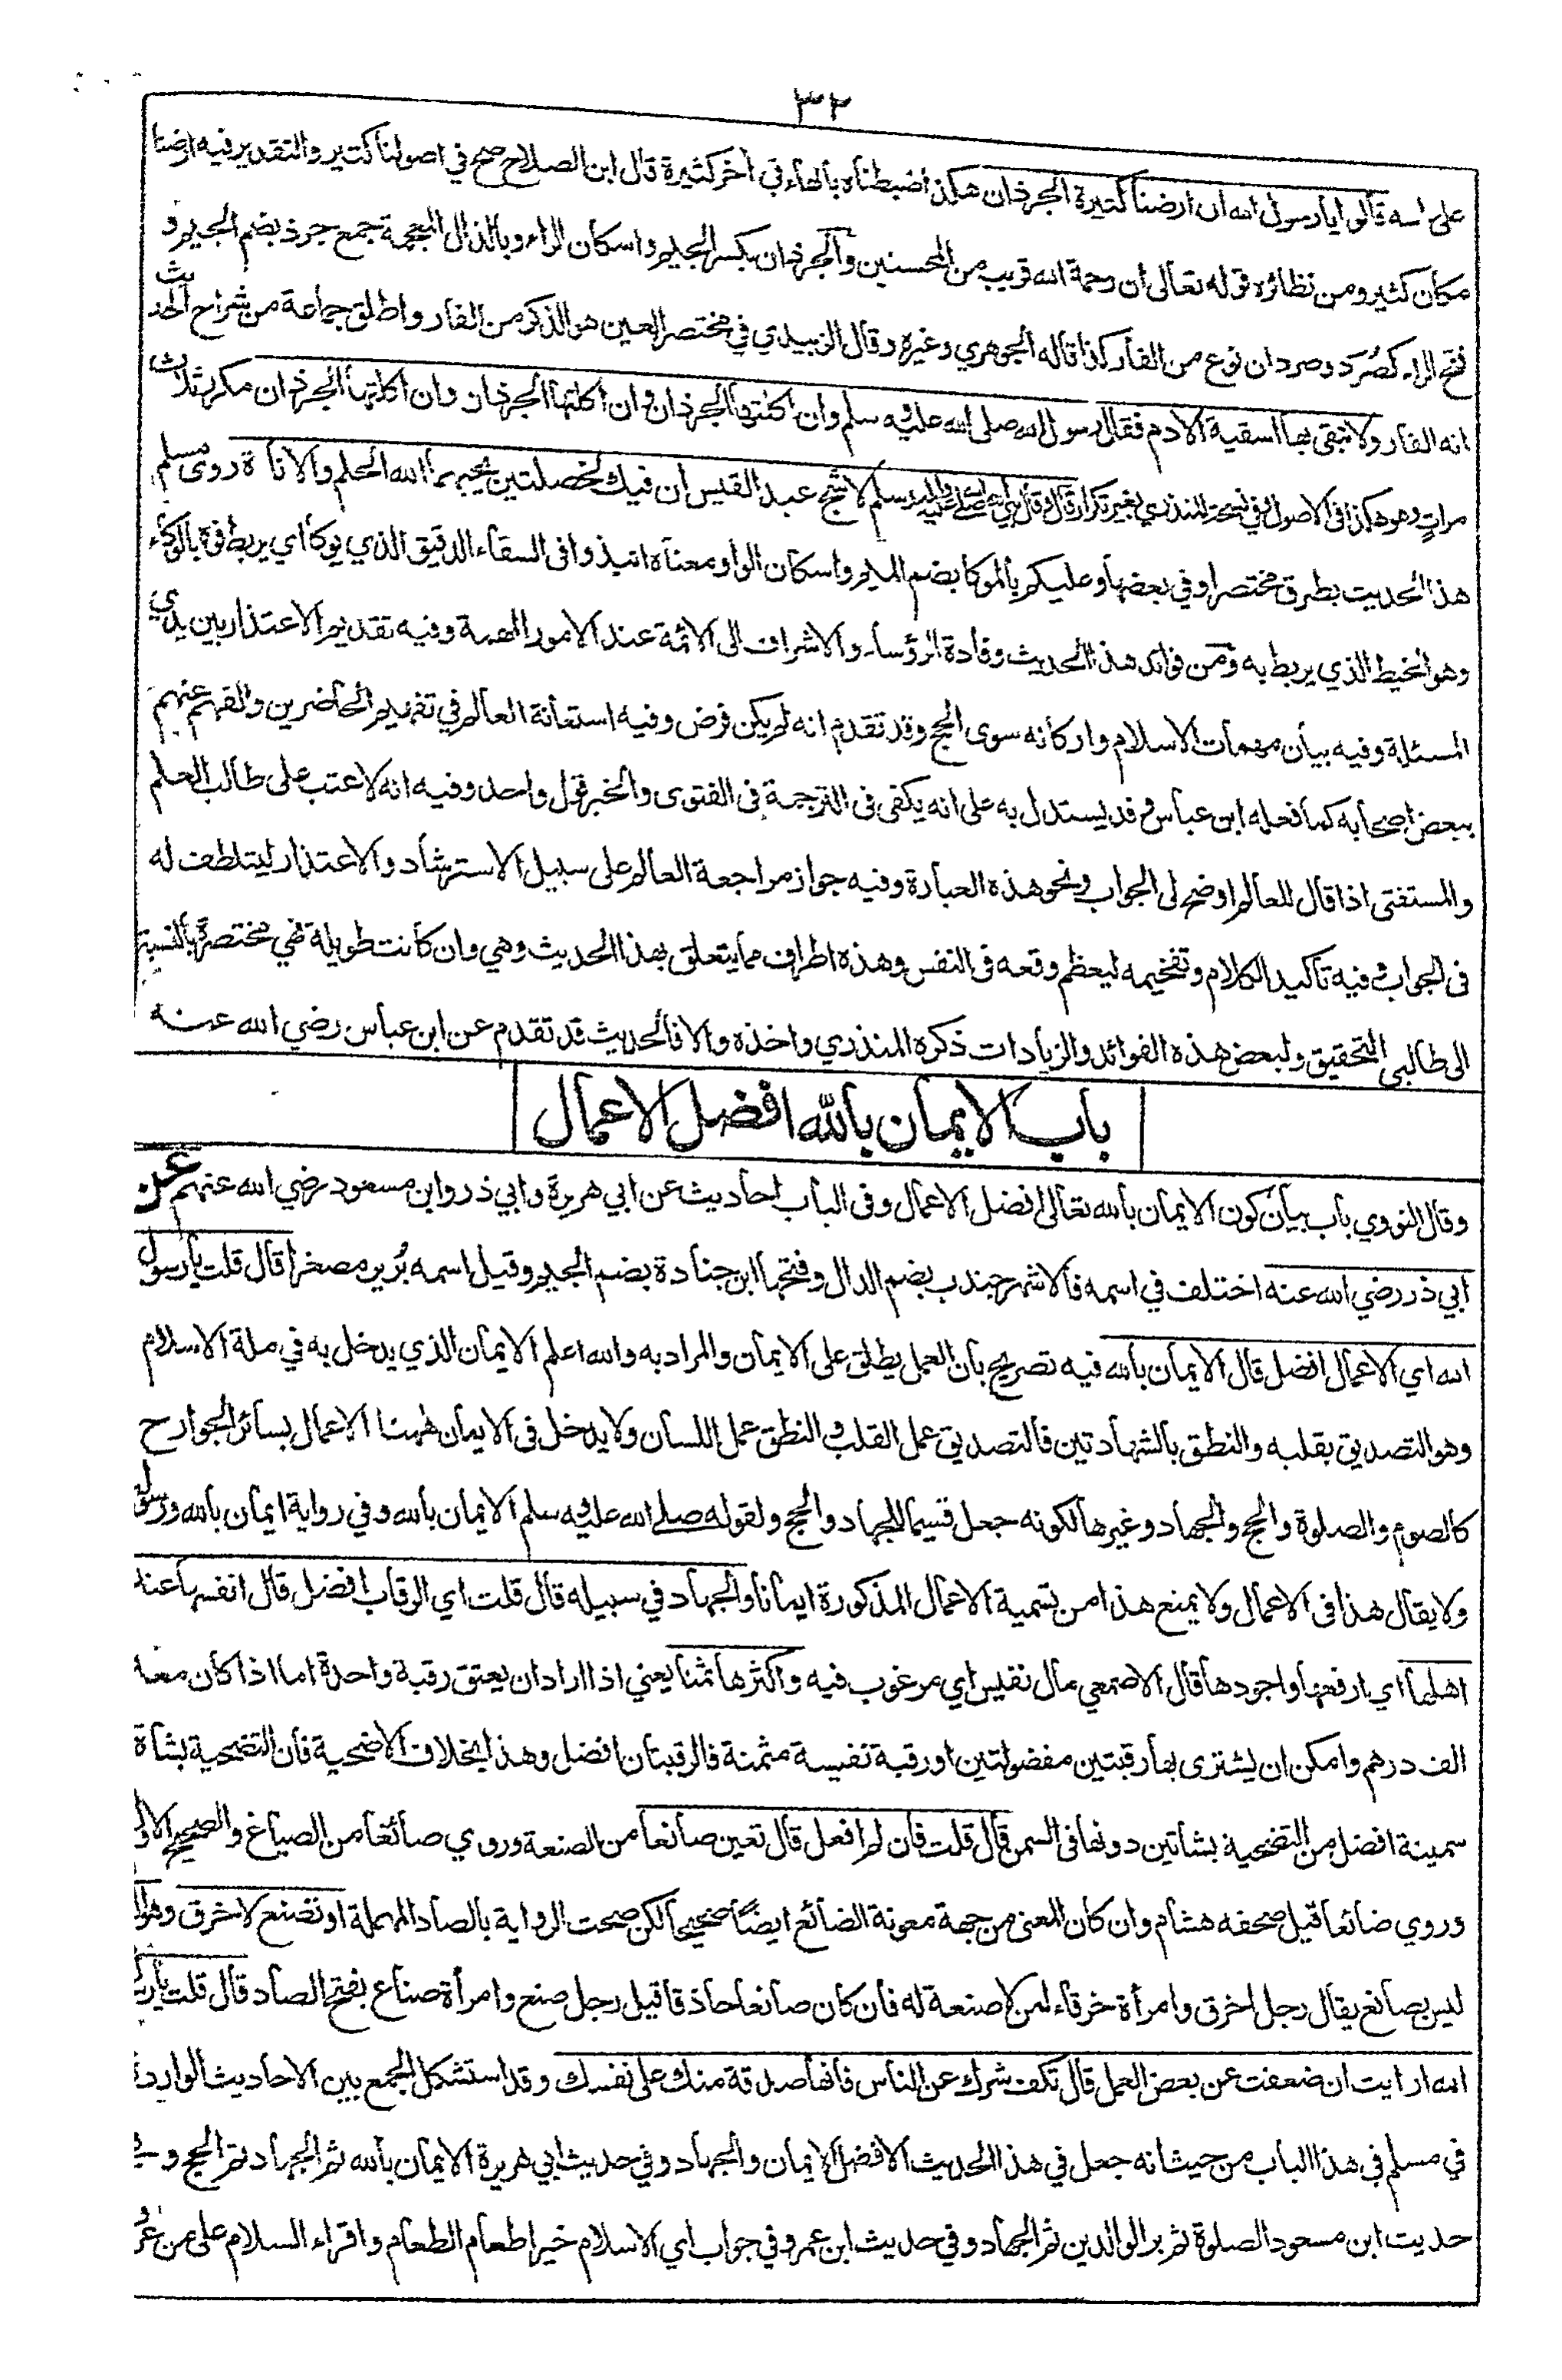 ٣٢
على راسه قالوا يا رسول الله ان ارضنا كثيرة الجرذان هكذا ضبطناه بالهاء في اخر كثيرة قال ابن الصلاح صح في اصولنا كثير والتقدير فيه ارضنا
مكان كثير ومن نظائره قوله تعالى ان رحمة الله قريب من المحسنين والجرذان بكسر الجيم واسكان الراء وبالذال المعجمة جمع جرذ بضم الجيم و
فتح الراء كصُرَد وصردان نوع من الفأر كذا قاله الجوهري وغيره وقال الزبيدي في مختصر العين هو الذكر من الفار واطلق جماعة من شراح الحديث
انه الفار ولا تبقى بها اسقية الادم فقال رسول الله صلى الله عليه وسلم وان اكلتها الجرذان وان اكلتها الجرذان وان اكلتها الجرذان مكرر ثلاث
مرات وهو هكذا في الاصول وفي نسخة المنذري بغير تكرار قال وقال نبي الله صلى الله عليه وسلم لاشج عبد القيس ان فيك لخصلتين يحبهما الله الحلم والاناة روى مسلم
هذا الحديث بطرق مختصرا وفي بعضها وعليكم بالموكا بضم الميم واسكان الواو ومعناه انبذوا في السقاء الدقيق الذي يوكأ اي يربط فوه بالوكاء
وهو الخيط الذي يربط به ومن فوائد هذا الحديث وفادة الرؤساء والاشراف الى الائمة عند الامور المهمة وفيه تقديم الاعتذار بين يدي
المسئلة وفيه بيان مهمات الاسلام واركانه سوى الحج وقد تقدم انه لم يكن فرض وفيه استعانة العالم في تفهيم الحاضرين والفهم عنهم
ببعض اصحابه كما فعله ابن عباس وقد يستدل به على انه يكفى في الترجمة في الفتوى والخبر قول واحد وفيه انه لا عتب على طالب العلم
والمستفتى اذا قال للعالم اوضح لى الجواب ونحو هذه العبارة وفيه جواز مراجعة العالم على سبيل الاسترشاد والاعتذار ليتلطف له
فى الجواب وفيه تاكيد الكلام وتفخيمه ليعظم وقعه فى النفس وهذه اطراف مما يتعلق بهذا الحديث وهي وان كانت طويلة فهي مختصرة بالنسبة
الى طالبي التحقيق ولبعض هذه الفوائد والزيادات ذكره المنذري واخذه والا فالحديث قد تقدم عن ابن عباس رضي الله عنه
باب الايمان بالله افضل الاعمال
وقال النووي باب بيان كون الايمان بالله تعالى افضل الاعمال وفى الباب احاديث عن ابي هريرة وابي ذر وابن مسعود رضي الله عنهم عن
ابي ذر رضي الله عنه اختلف في اسمه فالاشهر جندب بضم الدال وفتحها ابن جنادة بضم الجيم وقيل اسمه بُرير مصغرا قال قلت يا رسول
الله اي الاعمال افضل قال الايمان بالله فيه تصريح بان العمل يطلق على الايمان والمراد به والله اعلم الايمان الذي يدخل به في ملة الاسلام
وهو التصديق بقلبه والنطق بالشهادتين فالتصديق عمل القلب والنطق عمل اللسان ولا يدخل فى الايمان ههنا الاعمال بسائر الجوارح
كالصوم والصلوة والحج والجهاد وغيرها لكونه جعل قسيما للجهاد والحج ولقوله صلى الله عليه وسلم الايمان بالله وفي رواية ايمان بالله ورسوله
ولا يقال هذا فى الاعمال ولا يمنع هذا من تسمية الاعمال المذكورة ايمانا والجهاد في سبيله قال قلت اي الرقاب افضل قال انفسها عند
اهلها اي ارفعها واجودها قال الاصمعي مال نفيس اي مرغوب فيه واكثرها ثمنا يعني اذا اراد ان يعتق رقبة واحدة اما اذا كان معه
الف درهم وامكن ان يشترى بها رقبتين مفضولتين او رقبة نفيسة مثمنة فالرقبتان افضل وهذا بخلاف الاضحية فان التضحية بشاة
سمينة افضل من التضحية بشاتين دونها فى السمن قال قلت فان لم افعل قال تعين صانعا من الصنعة وروي صائغا من الصياغ والصحيح الاول
وروي ضائعا قيل صحفه هشام وان كان المعنى من جهة معونة الضائع ايضا صحيحا لكن صحت الرواية بالصاد المهملة او تصنع لاخرق وهو الذي
ليس بصانع يقال رجل اخرق وامرأة خرقاء لمن لا صنعة له فان كان صانعا حاذقا قيل رجل صنع وامرأة صناع بفتح الصاد قال قلت يا رسول
الله ارايت ان ضعفت عن بعض العمل قال تكف شرك عن الناس فانها صدقة منك على نفسك وقد استشكل الجمع بين الاحاديث الواردة
في مسلم في هذا الباب من حيث انه جعل في هذا الحديث الافضل الايمان والجهاد وفي حديث ابي هريرة الايمان بالله ثم الجهاد ثم الحج وفي
حديث ابن مسعود الصلوة ثم بر الوالدين ثم الجهاد وفي حديث ابن عمرو في جواب اي الاسلام خير اطعام الطعام واقراء السلام على من عرف